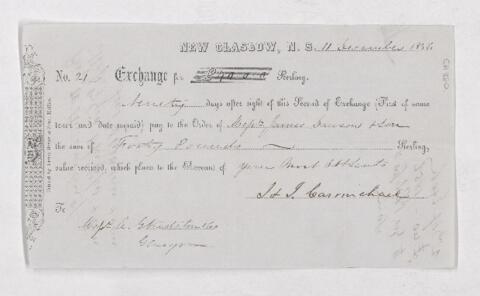 NEW GLASGOW, N. S. 11 December
No. 21 Exchange for Sterling.
Ninety days after sight of this Second of Exchange (First of same
tenor and date unpaid) pay to the Order of Messrs James Dawson & Son
the sum of Forty Pounds Sterling,
value received, which place to the Account of your Most Obt Servts
J & J. Carmichael
To
Messrs A.
Glasgow